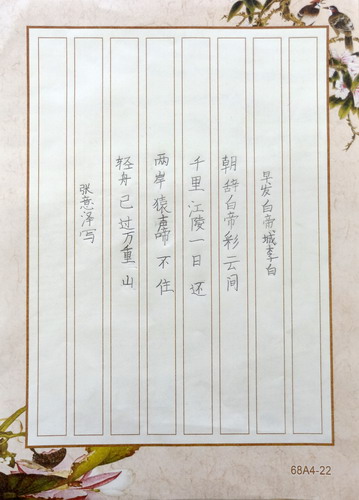 早发白帝城李白
朝辞白帝彩云间
千里江陵一日还
两岸猿声啼不住
轻舟已过万重山
张意泽写
68A4-22